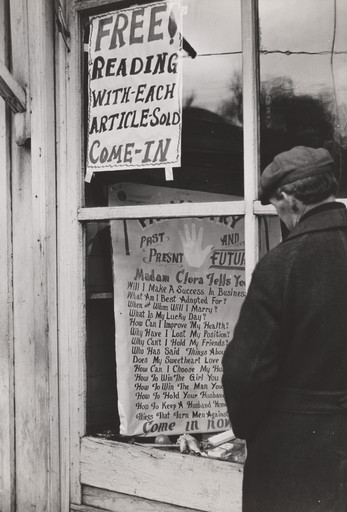 FREE!
READING
WITH-EACH
ARTICLE-SOLD
COME-IN
PALMISTRY
PAST AND
PRESNT FUTUR
Madam Clora Tells Yo
Will I Make A Success In Business
What Am I Best Adapted For?
When & Whom Will I Marry?
What Is My Lucky Day?
How Can I Improve My Health?
Why Have I Lost My Position?
Why Can't I Hold My Friends?
Who Has Said Things Abou
Does My Sweetheart Love
How Can I Choose My Hu
How To Win The Girl You
How To Win The Man You
How To Hold Your Husban
How To Keep A Husband Home
Things That Turn Men Against
Come In Now